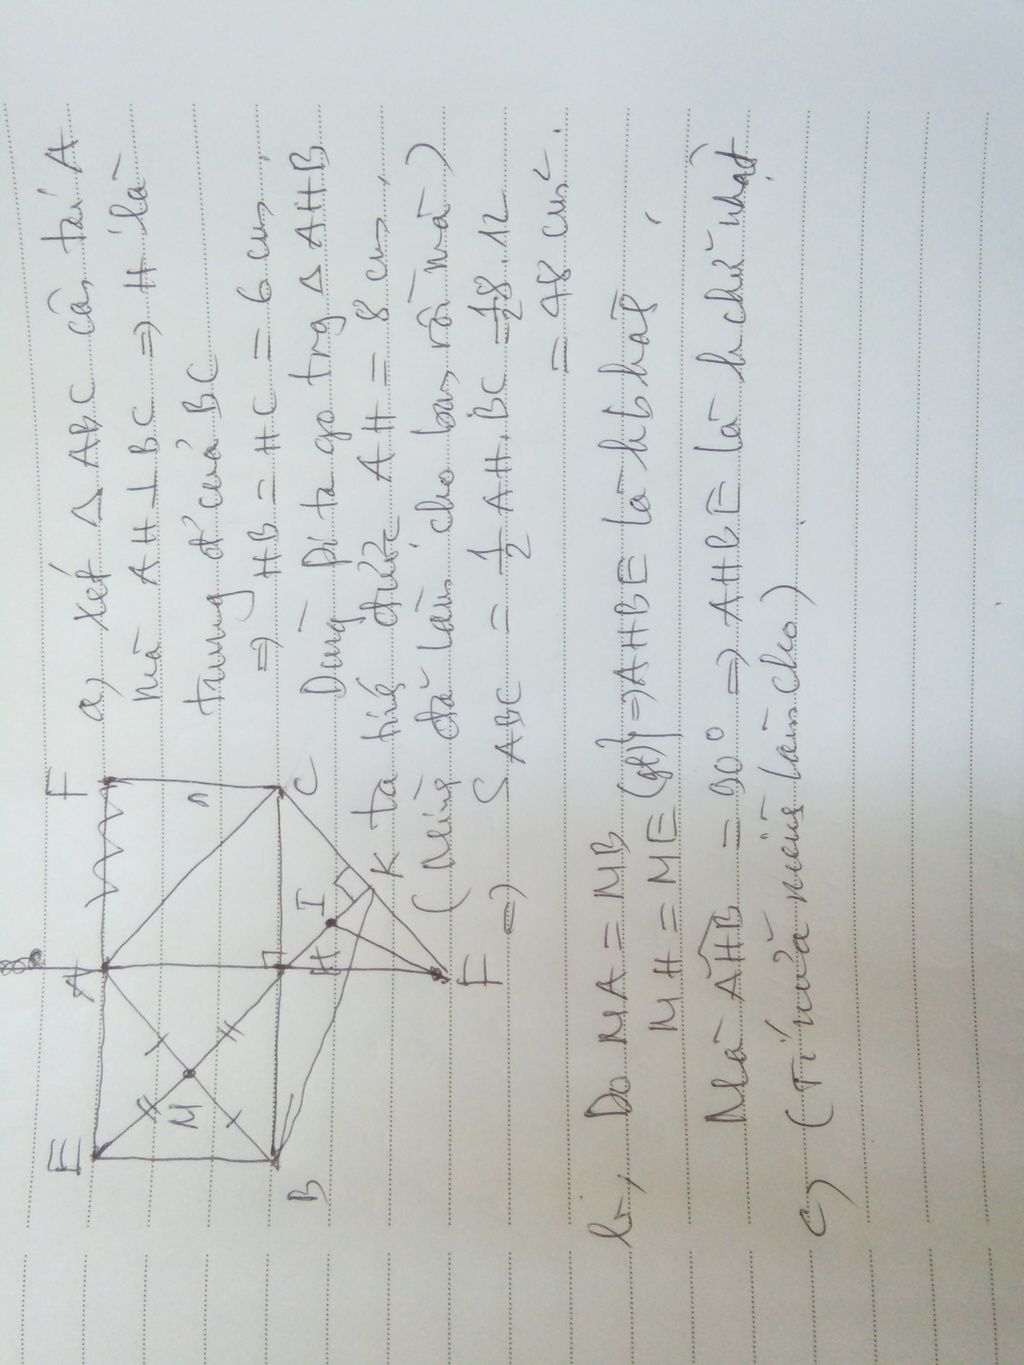 a, Xét Δ ABC cân tại A
mà AH ⊥ BC ⇒ H là
trung đ' của BC
⇒ HB = HC = 6 cm.
Dùng Pi ta go trg Δ AHB
ta tính được AH = 8 cm.
(Mình đã làm cho bạn rồi mà)
⇒ S ABC = 1/2 AH.BC = 1/2 8.12
= 48 cm².
E
A
F
M
B
H
I
C
K
F
b, Do MA = MB
MH = ME (gt)} ⇒ AHBE là hbhàh
Mà AHB = 90° ⇒ AHBE là h chữ nhật
c, (Tí nữa mình làm cho)